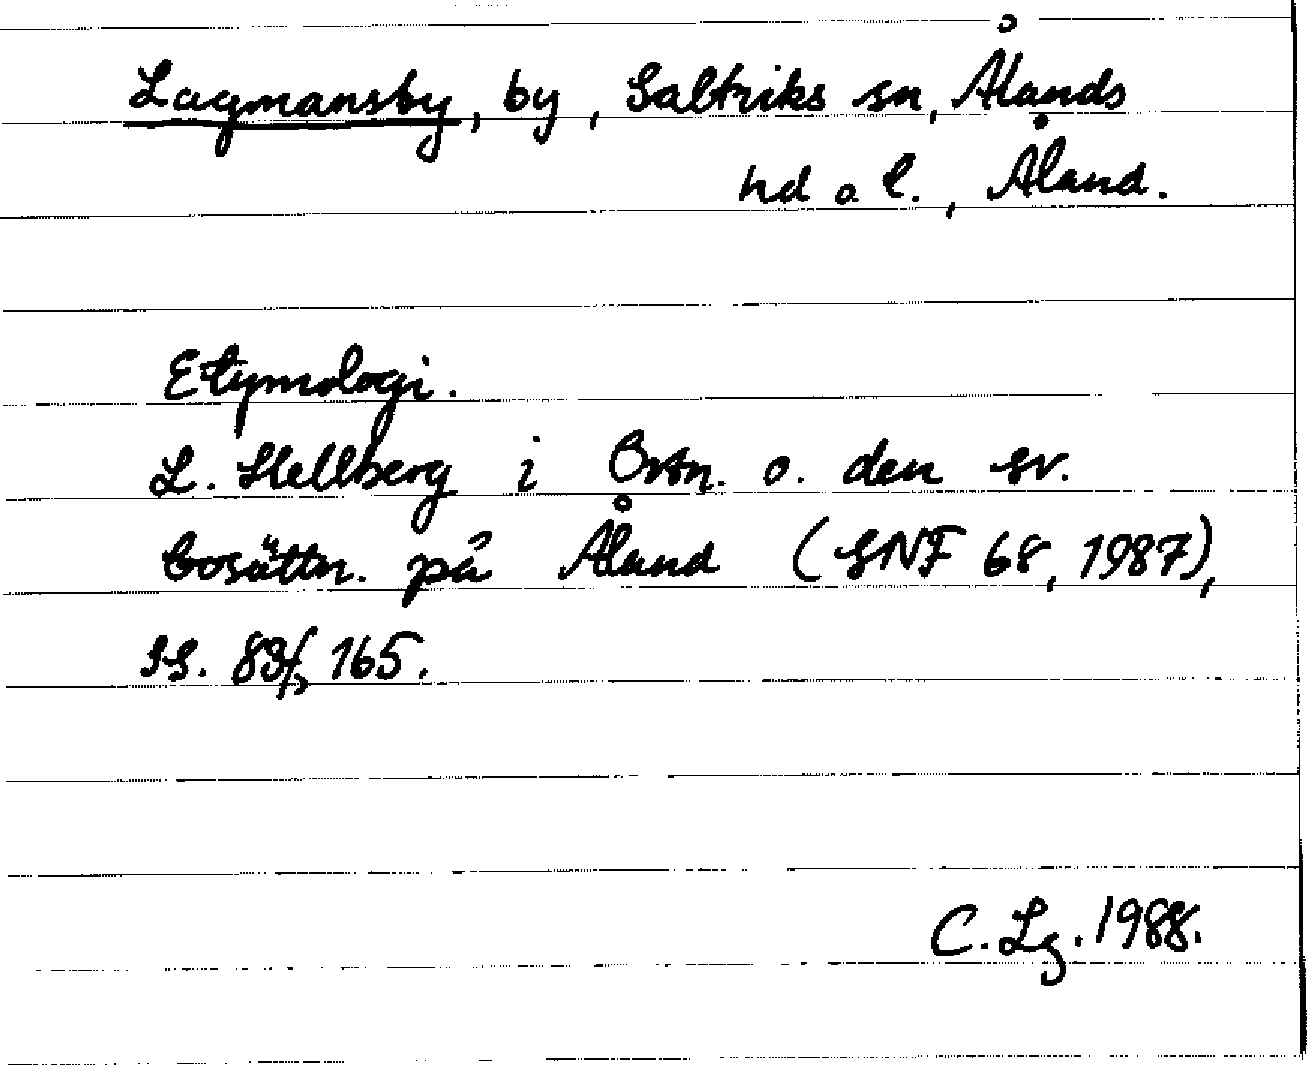 Lagmansby, by, Saltviks sn, Ålands
hd o. l., Åland.
Etymologi.
L. Hellberg i Ortn. o. den sv.
bosättn. på Åland (SNF 68, 1987),
ss. 83f, 165.
C. Lg. 1988.